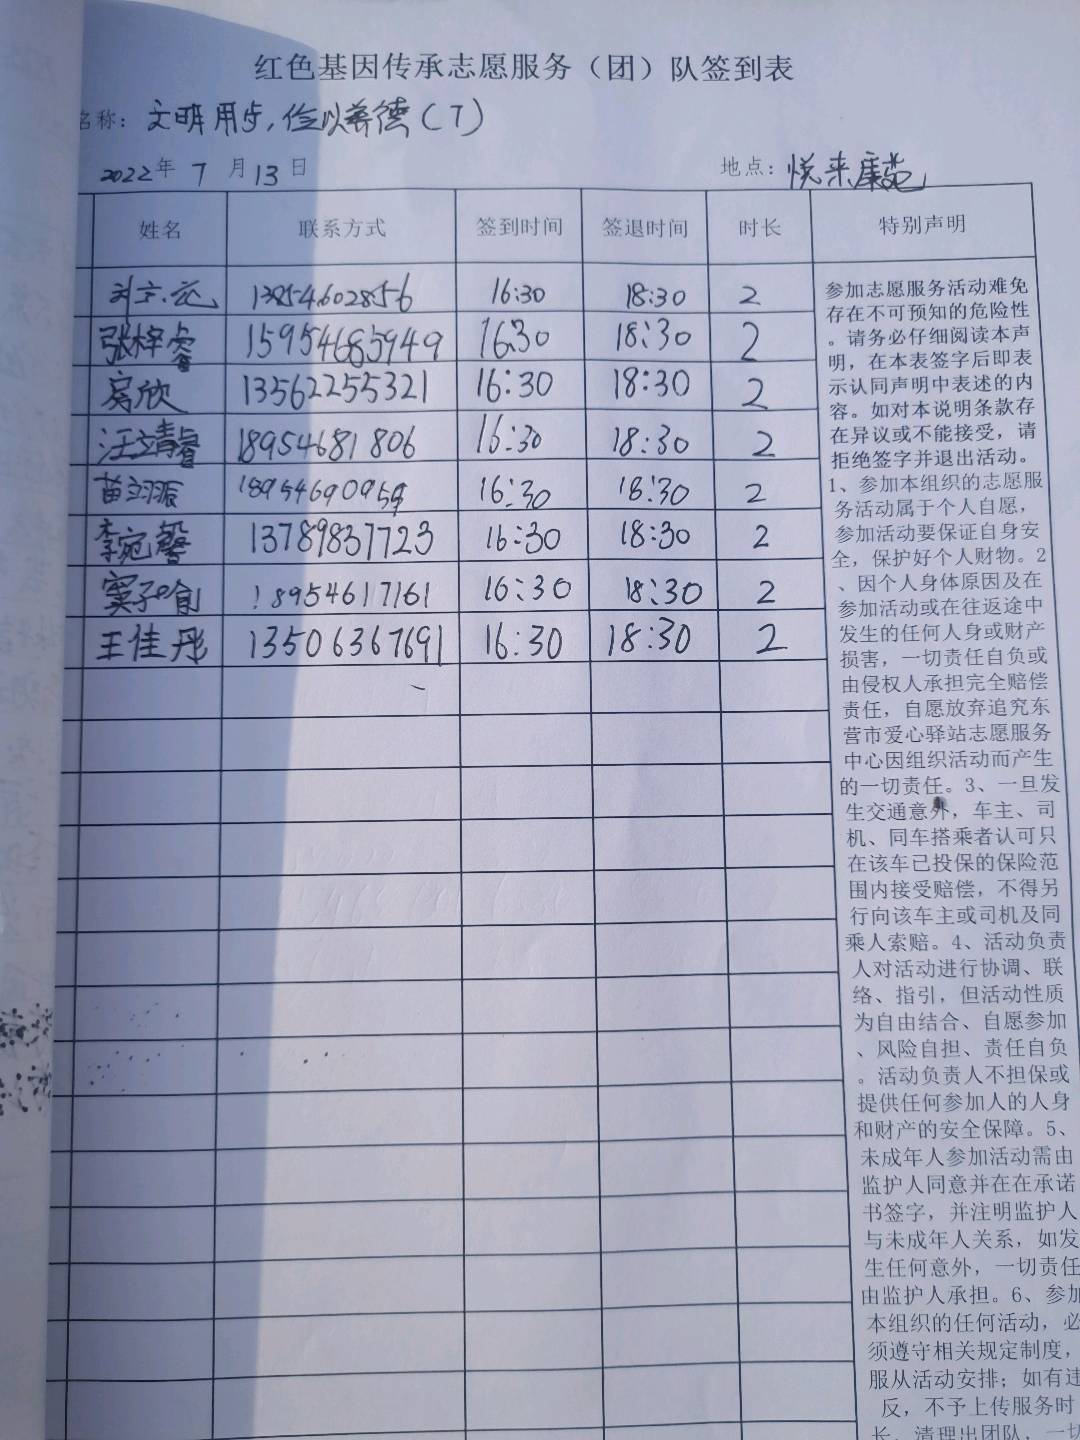 红色基因传承志愿服务（团）队签到表
名称：文明用步，俭以养德（7）
2022年 7 月 13 日 地点：悦来康苑
姓名 联系方式 签到时间 签退时间 时长 特别声明
13854602856 16:30 18:30 2
张梓睿 15954685949 16:30 18:30 2
房欣 13562255321 16:30 18:30 2
汪靖睿 18954681806 16:30 18:30 2
苗羽振 18954690959 16:30 18:30 2
李宛馨 13789837723 16:30 18:30 2
窦子喻 18954617161 16:30 18:30 2
王佳丹 13506367691 16:30 18:30 2
参加志愿服务活动难免
存在不可预知的危险性
。请务必仔细阅读本声
明，在本表签字后即表
示认同声明中表述的内
容。如对本说明条款存
在异议或不能接受，请
拒绝签字并退出活动。
1、参加本组织的志愿服
务活动属于个人自愿，
参加活动要保证自身安
全，保护好个人财物。2
、因个人身体原因及在
参加活动或在往返途中
发生的任何人身或财产
损害，一切责任自负或
由侵权人承担完全赔偿
责任，自愿放弃追究东
营市爱心驿站志愿服务
中心因组织活动而产生
的一切责任。3、一旦发
生交通意外，车主、司
机、同车搭乘者认可只
在该车已投保的保险范
围内接受赔偿，不得另
行向该车主或司机及同
乘人索赔。4、活动负责
人对活动进行协调、联
络、指引，但活动性质
为自由结合、自愿参加
、风险自担、责任自负
。活动负责人不担保或
提供任何参加人的人身
和财产的安全保障。5、
未成年人参加活动需由
监护人同意并在在承诺
书签字，并注明监护人
与未成年人关系，如发
生任何意外，一切责任
由监护人承担。6、参加
本组织的任何活动，必
须遵守相关规定制度，
服从活动安排；如有违
反，不予上传服务时
长，清理出团队，一切